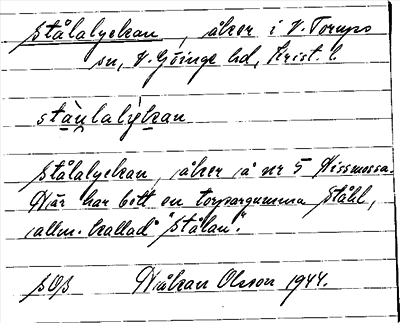 Stålalyckan, åker i V. Torups
sn, V. Göinge hd, Krist. l.
stàu̯laly̌kan
Stålalyckan, åker å nr 5 Hissmossa.
Här har bott en torpargumma Ståhl,
allm. kallad "Stålan".
Håkan Olsson 1944.